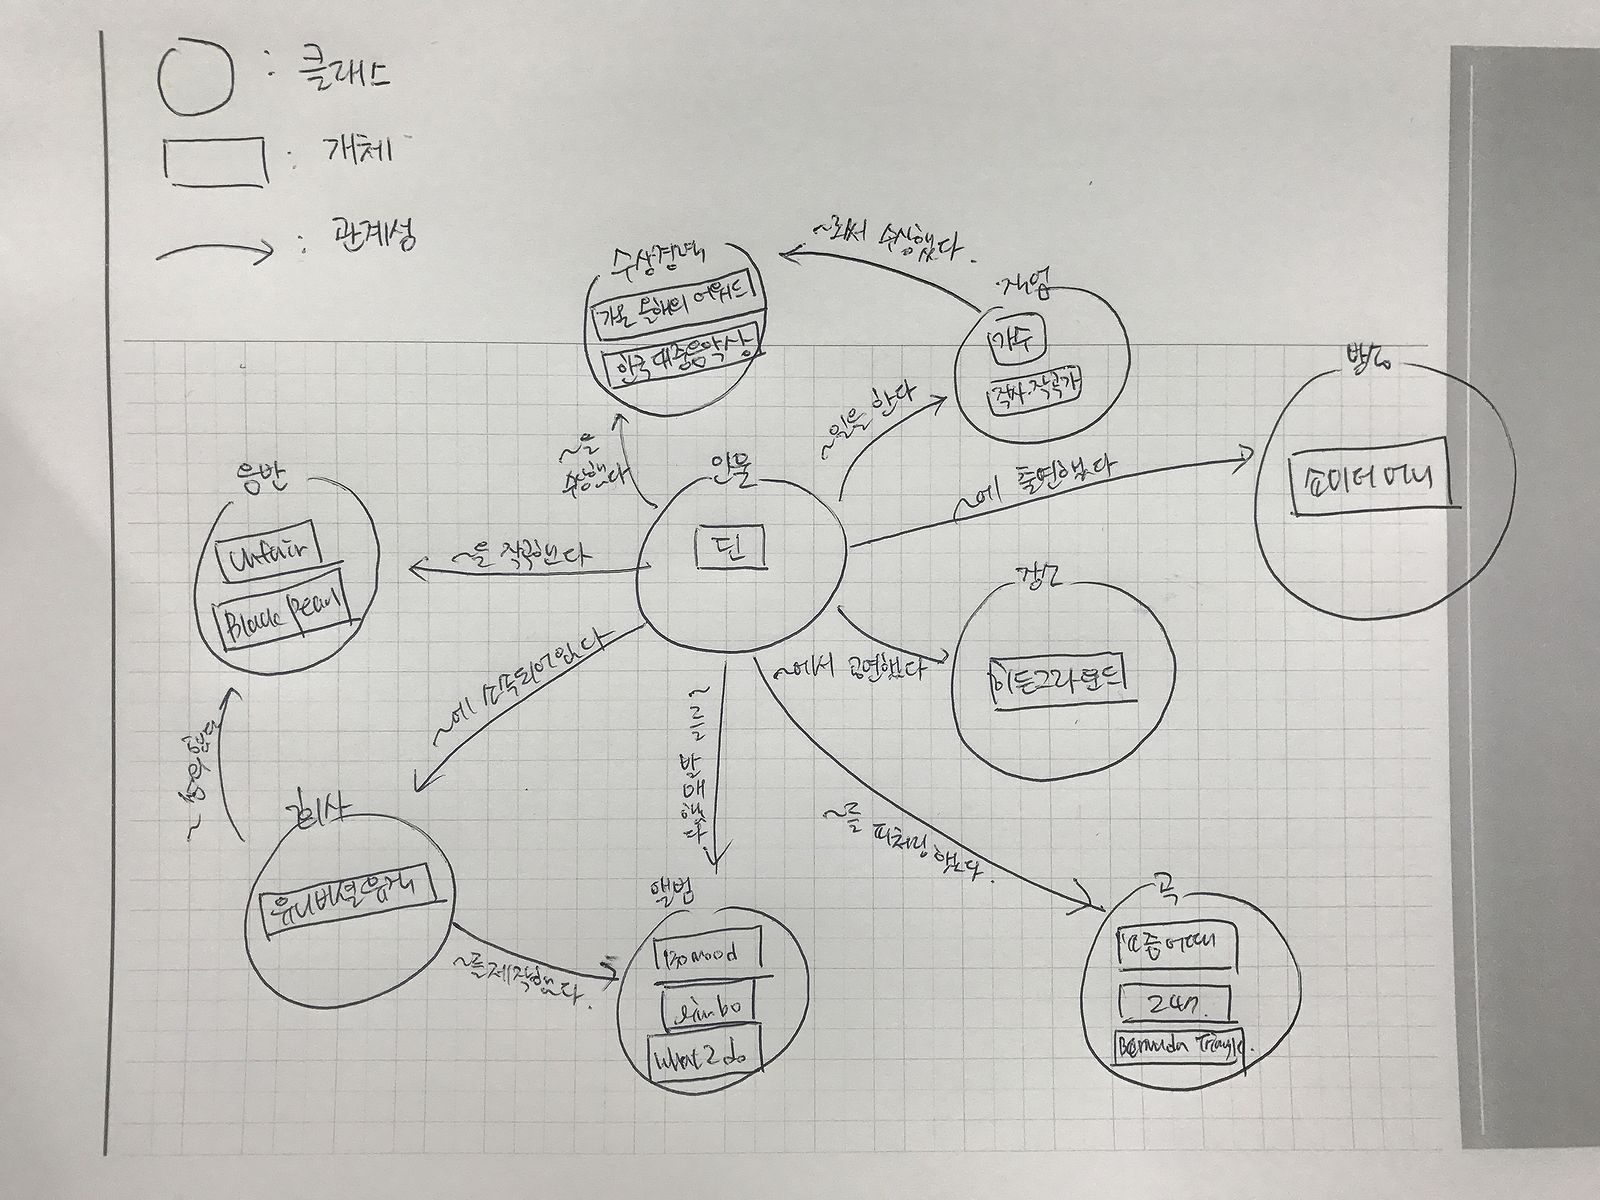 : 클래스
: 개체
: 관계성
수상경력
가온 올해의 어워드
한국 대중음악상
~로서 수상했다.
직업
가수
작사·작곡가
방송
쇼미더머니
~을
수상했다
~일을 한다
~에 출연했다
인물
딘
음반
Unfair
Black pearl
~을 작곡했다
장소
히든그라운드
~에서 공연했다
~에 소속되어있다
~를 발매했다.
~를 피처링 했다.
회사
유니버설뮤직
~를 제작했다.
앨범
130 mood
limbo
What 2 do
곡
요즘 어때
247.
Bermuda Triangle.